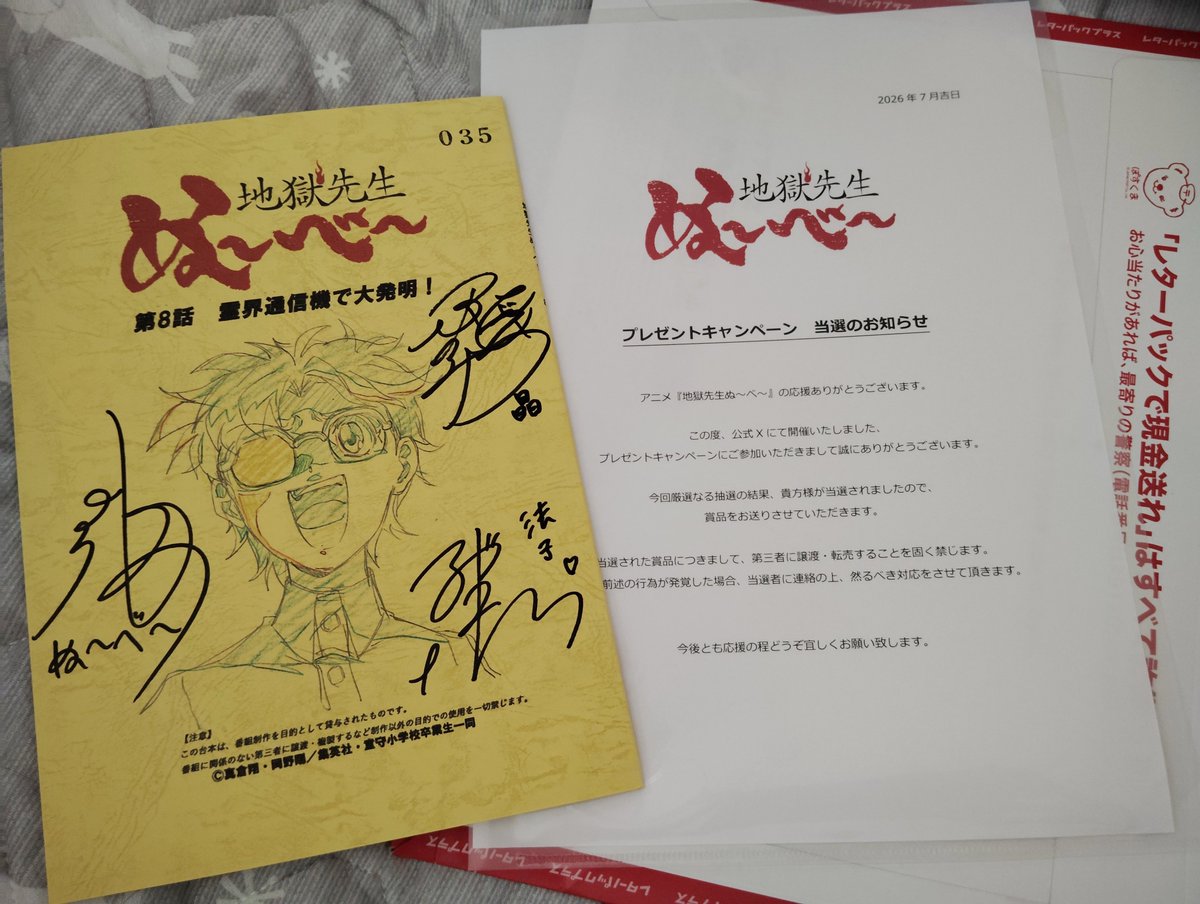 035
地獄先生
ぬ~べ~
第8話 霊界通信機で大発明!
晶
法子♡
ぬ~べ~
【注意】
この台本は、番組制作を目的として貸与されたものです。
番組に関係のない第三者に譲渡・複製するなど制作以外の目的での使用を一切禁じます。
©真倉翔・岡野剛/集英社・童守小学校卒業生一同
2026年7月吉日
地獄先生
ぬ~べ~
プレゼントキャンペーン 当選のお知らせ
アニメ『地獄先生ぬ~べ~』の応援ありがとうございます。
この度、公式Xにて開催いたしました、
プレゼントキャンペーンにご参加いただきまして誠にありがとうございます。
今回厳選なる抽選の結果、貴方様が当選されましたので、
賞品をお送りさせていただきます。
当選された賞品につきまして、第三者に譲渡・転売することを固く禁じます。
前述の行為が発覚した場合、当選者に連絡の上、然るべき対応をさせて頂きます。
今後とも応援の程どうぞ宜しくお願い致します。
レターパックプラス レターパックプラス
ぽすくま
「レターパックで現金送れ」はすべて
お心当たりがあれば、最寄りの警察(電話番
レターパックプラス レターパックプラス